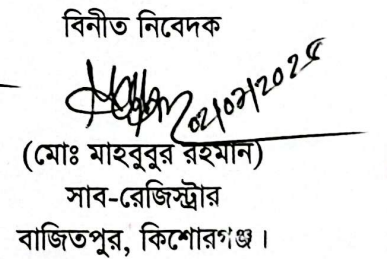 বিনীত নিবেদক
(মোঃ মাহবুবুর রহমান)
সাব-রেজিস্ট্রার
বাজিতপুর, কিশোরগঞ্জ।